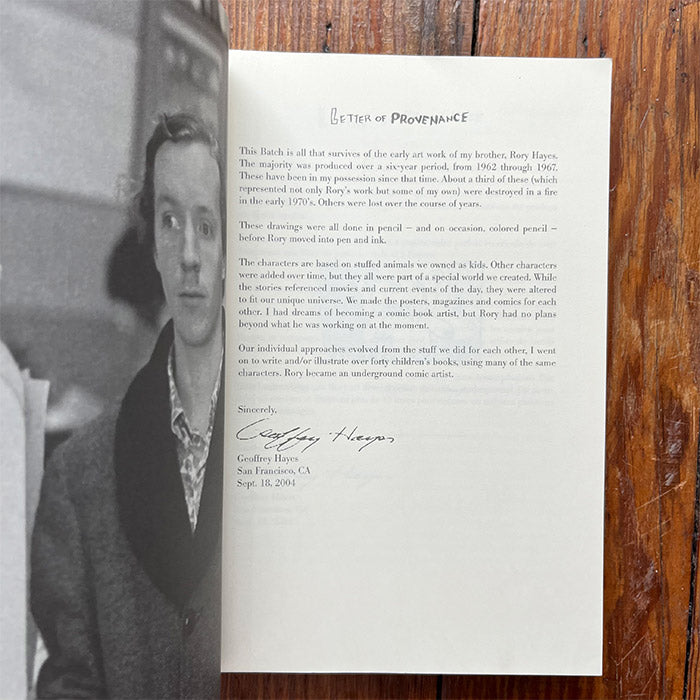 LETTER OF PROVENANCE
This Batch is all that survives of the early art work of my brother, Rory Hayes.
The majority was produced over a six-year period, from 1962 through 1967.
These have been in my possession since that time. About a third of these (which
represented not only Rory's work but some of my own) were destroyed in a fire
in the early 1970's. Others were lost over the course of years.
These drawings were all done in pencil – and on occasion, colored pencil –
before Rory moved into pen and ink.
The characters are based on stuffed animals we owned as kids. Other characters
were added over time, but they all were part of a special world we created. While
the stories referenced movies and current events of the day, they were altered
to fit our unique universe. We made the posters, magazines and comics for each
other. I had dreams of becoming a comic book artist, but Rory had no plans
beyond what he was working on at the moment.
Our individual approaches evolved from the stuff we did for each other, I went
on to write and/or illustrate over forty children's books, using many of the same
characters. Rory became an underground comic artist.
Sincerely,
Geoffrey Hayes
Geoffrey Hayes
San Francisco, CA
Sept. 18, 2004